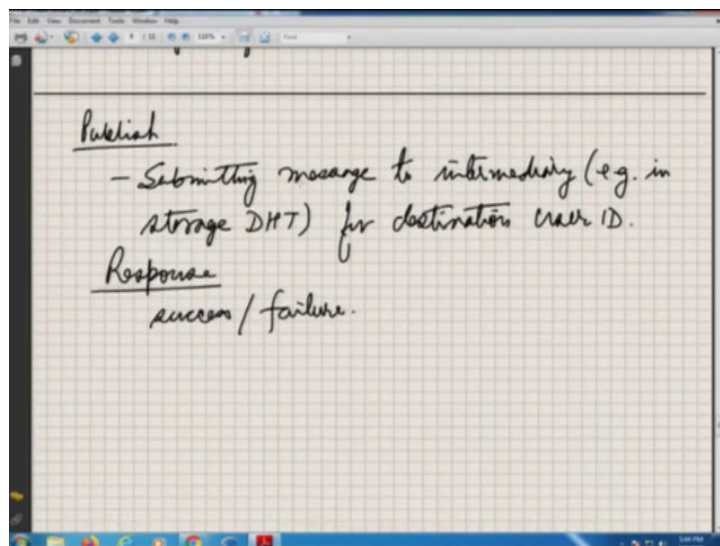 File Edit View Document Tools Window Help
9 / 11 110% Find
Publish
- Submitting message to intermediary (e.g. in
storage DHT) for destination user ID.
Response
success / failure.
5:44 PM